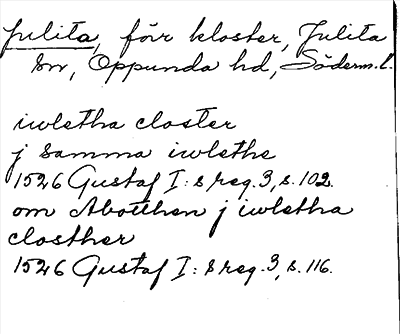 Julita, förr kloster, Julita
sn, Oppunda hd, Söderm.l.
iwletha closter
j samma iwlethe
1526 Gustaf I:s reg. 3, s. 102.
om Abotthen j iwletha
closther
1526 Gustaf I:s reg. 3, s. 116.